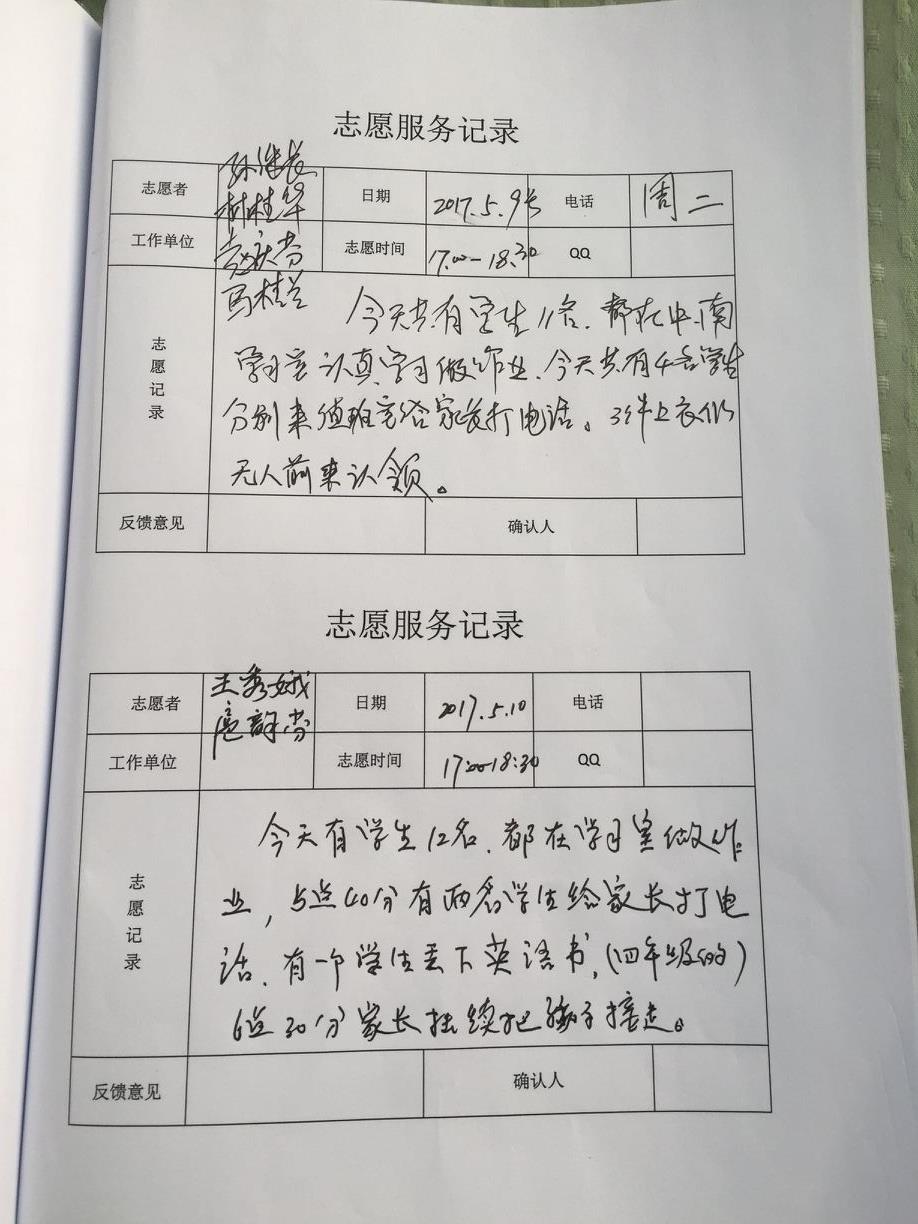 志愿服务记录
志愿者 日期 2017.5.9号 电话 周二
林桂华
工作单位 志愿时间 17.00-18.30 QQ
马桂兰
志愿记录
今天共有学生11名.都在中.南
学习室认真学习做作业.今天共有4名学生
分别来值班室给家长打电话。3件上衣仍
无人前来认领。
反馈意见 确认人
志愿服务记录
志愿者 王秀娥 日期 2017.5.10 电话
工作单位 志愿时间 17:00-18:30 QQ
志愿记录
今天有学生12名.都在学习室做作
业,5点40分有两名学生给家长打电
话.有一个学生丢下英语书,(四年级的)
6点30分家长陆续把孩子接走。
反馈意见 确认人